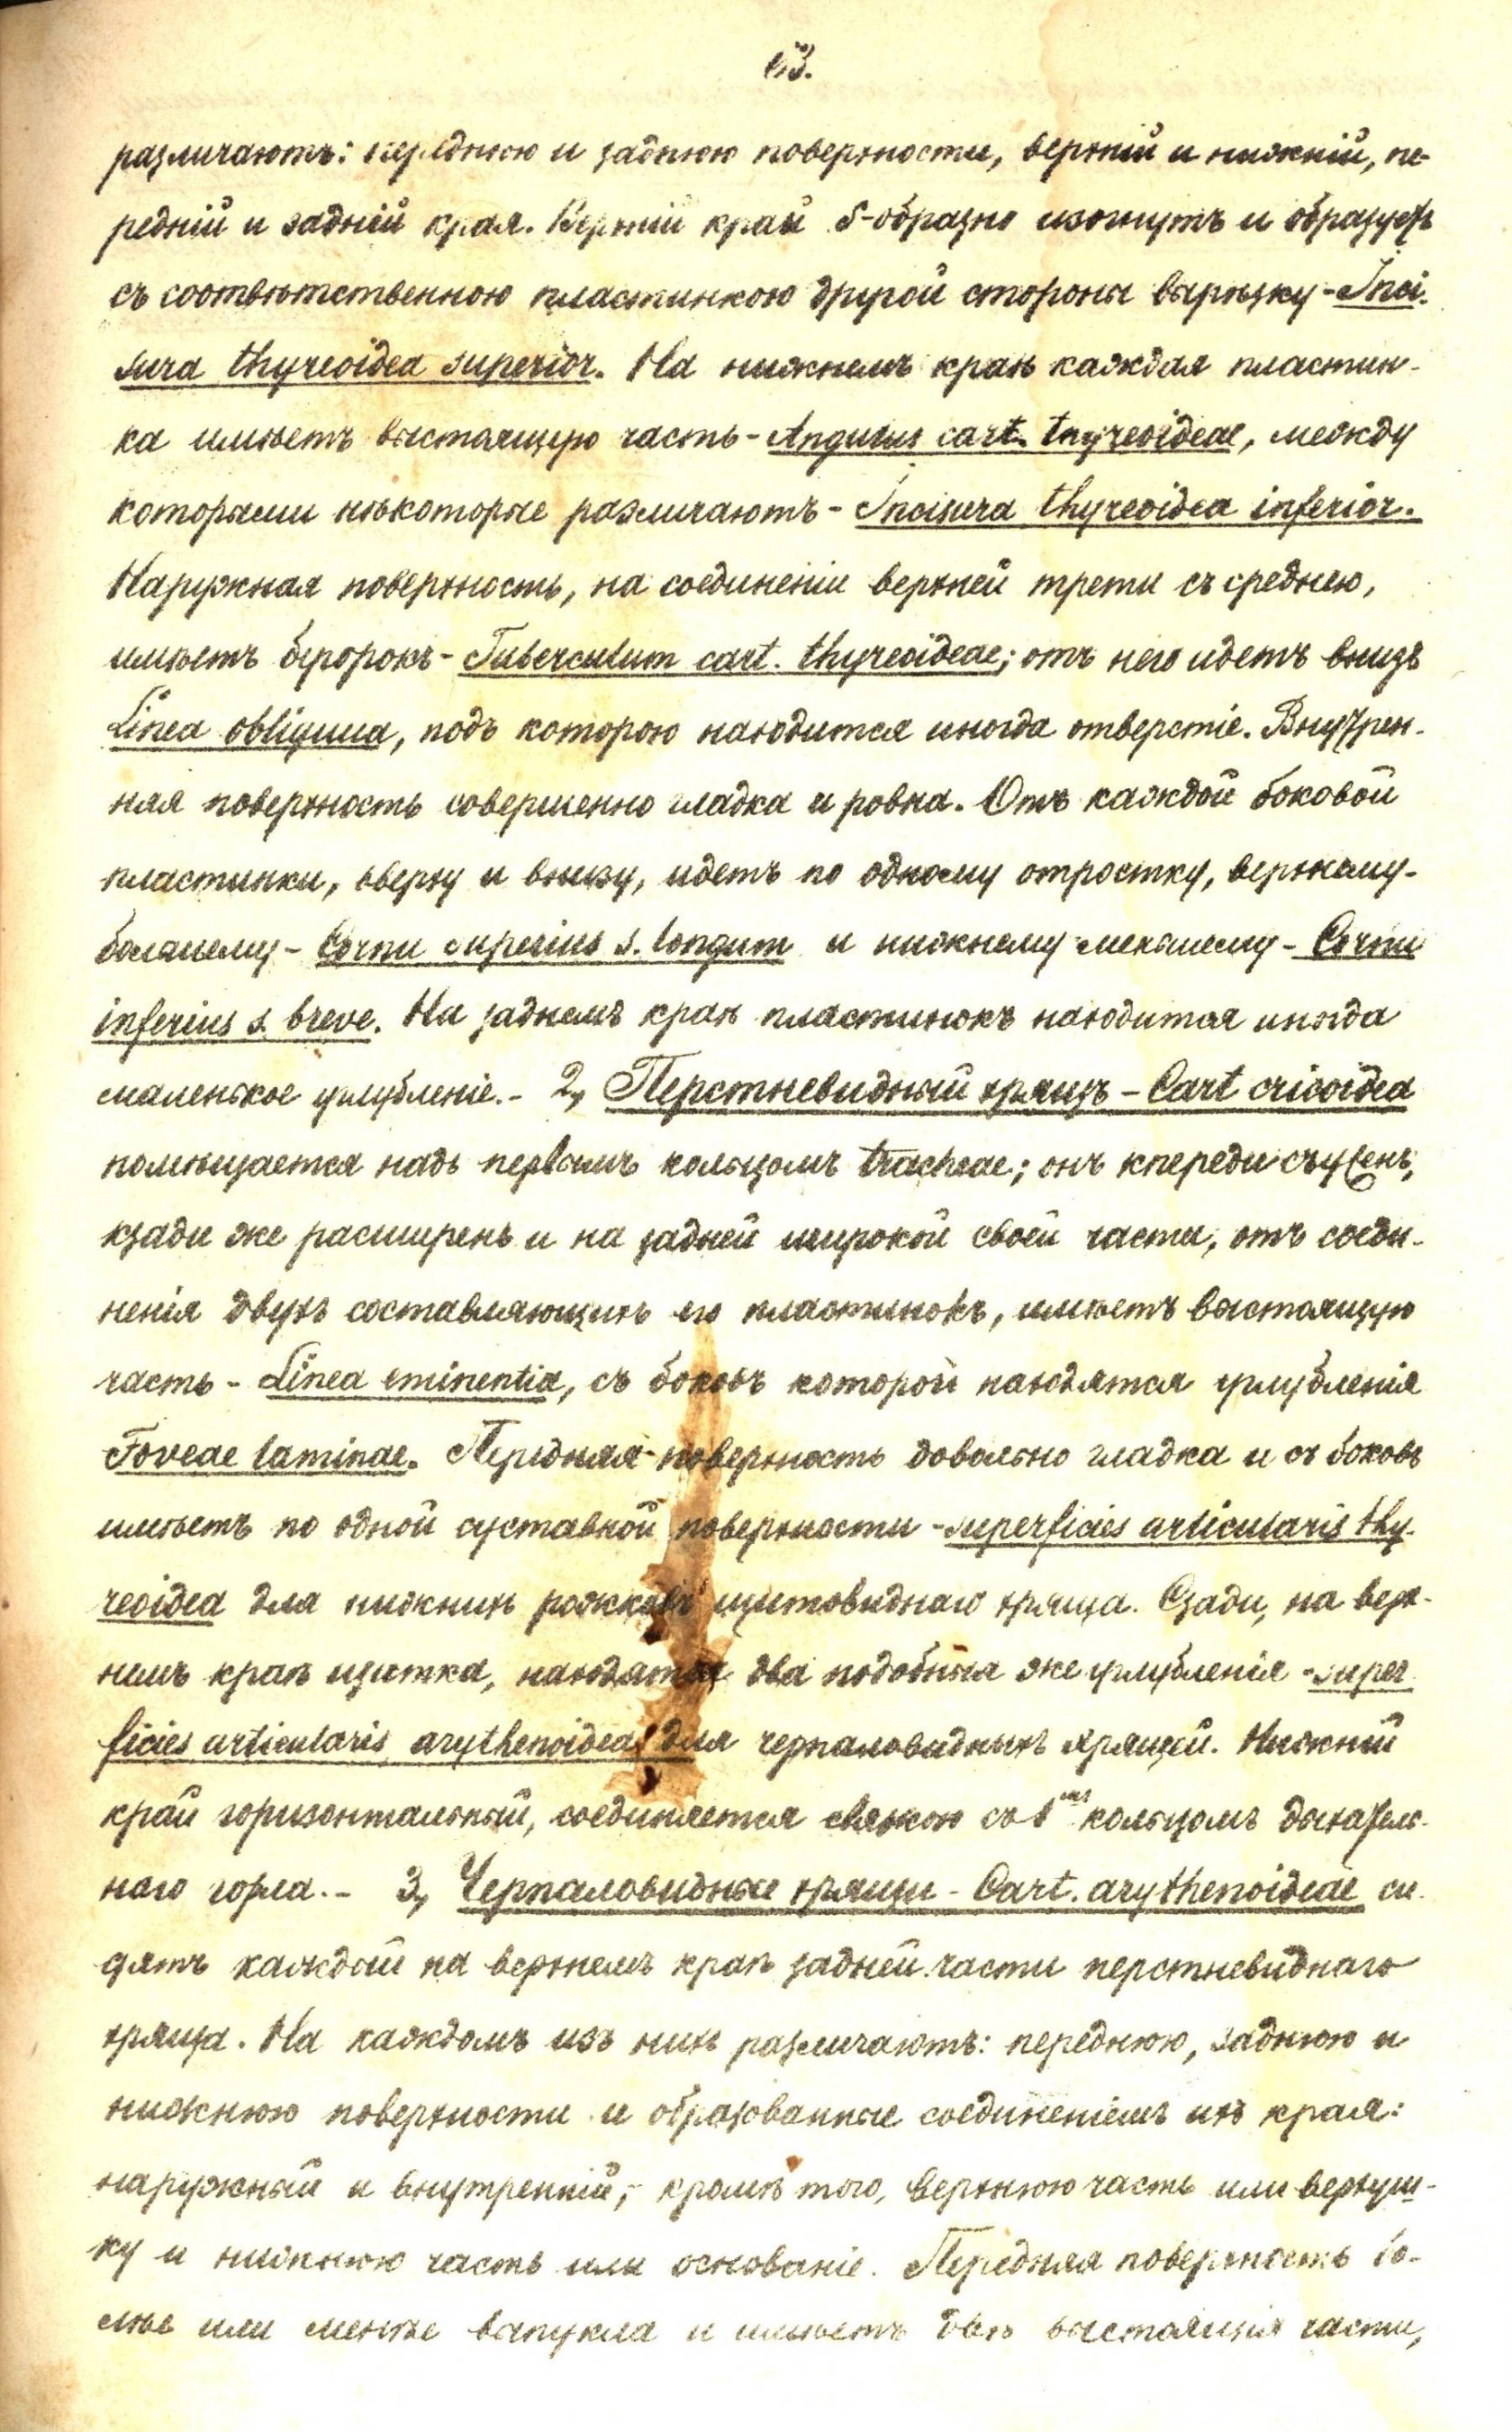 различаютъ: переднюю и заднюю поверхности, верхній и нижній, пе-
редній и задній края. Верхній край S-образно изогнутъ и образуетъ
съ соотвѣтственною пластинкою другой стороны вырѣзку - Inci-
sura thyreoidea superior. На нижнемъ краѣ каждая пластин-
ка имѣетъ выстоящую часть - Angulus cart. thyreoideae, между
которыми нѣкоторые различаютъ - Incisura thyreoidea inferior.
Наружная поверхность, на соединеніи верхней трети съ среднею,
имѣетъ бугорокъ - Tuberculum cart. thyreoideae; отъ него идетъ внизъ
Linea obliqua, подъ которою находится иногда отверстіе. Внутрен-
няя поверхность совершенно гладка и ровна. Отъ каждой боковой
пластинки, вверху и внизу, идетъ по одному отростку, верхнему-
большему - Cornu superius s. longum и нижнему меньшему - Cornu
inferius s. breve. На заднемъ краѣ пластинокъ находится иногда
маленькое углубленіе. - 2, Перстневидный хрящъ - Cart cricoidea
помѣщается надъ первымъ кольцомъ tracheae; онъ кпереди съуженъ,
кзади же расширенъ и на задней широкой своей части, отъ соеди-
ненія двухъ составляющихъ его пластинокъ, имѣетъ выстоящую
часть - Linea eminentia, съ боковъ которой находятся углубленія
Foveae laminae. Передняя поверхность довольно гладка и съ боковъ
имѣетъ по одной суставной поверхности - superficies articularis thy-
reoidea для нижнихъ рожковъ щитовиднаго хряща. Сзади, на верх-
немъ краѣ щитка, находятся два подобныя же углубленія - super-
ficies articularis arythenoidea для черпаловидныхъ хрящей. Нижній
край горизонтальный, соединяется связкою съ 1мъ кольцомъ дыхатель-
наго горла. - 3, Черпаловидные хрящи - Cart. arythenoideae си-
дятъ каждый на верхнемъ краѣ задней части перстневиднаго
хряща. На каждомъ изъ нихъ различаютъ: переднюю, заднюю и
нижнюю поверхности и образованные соединеніемъ ихъ края:
наружный и внутренній; кромѣ того, верхнюю часть или верхуш-
ку и нижнюю часть или основаніе. Передняя поверхность бо-
лѣе или менѣе выпукла и имѣетъ двѣ выстоящія части,